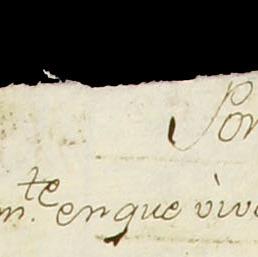 Por
m.te en que vive